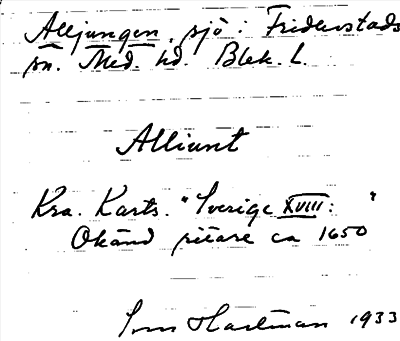 Alljungen, sjö i Fridlevstads
sn. Med. hd. Blek. l.
Alliunt
Kra. Karts. "Sverige XVIII:   "
Okänd ritare ca 1650
Hartman 1933